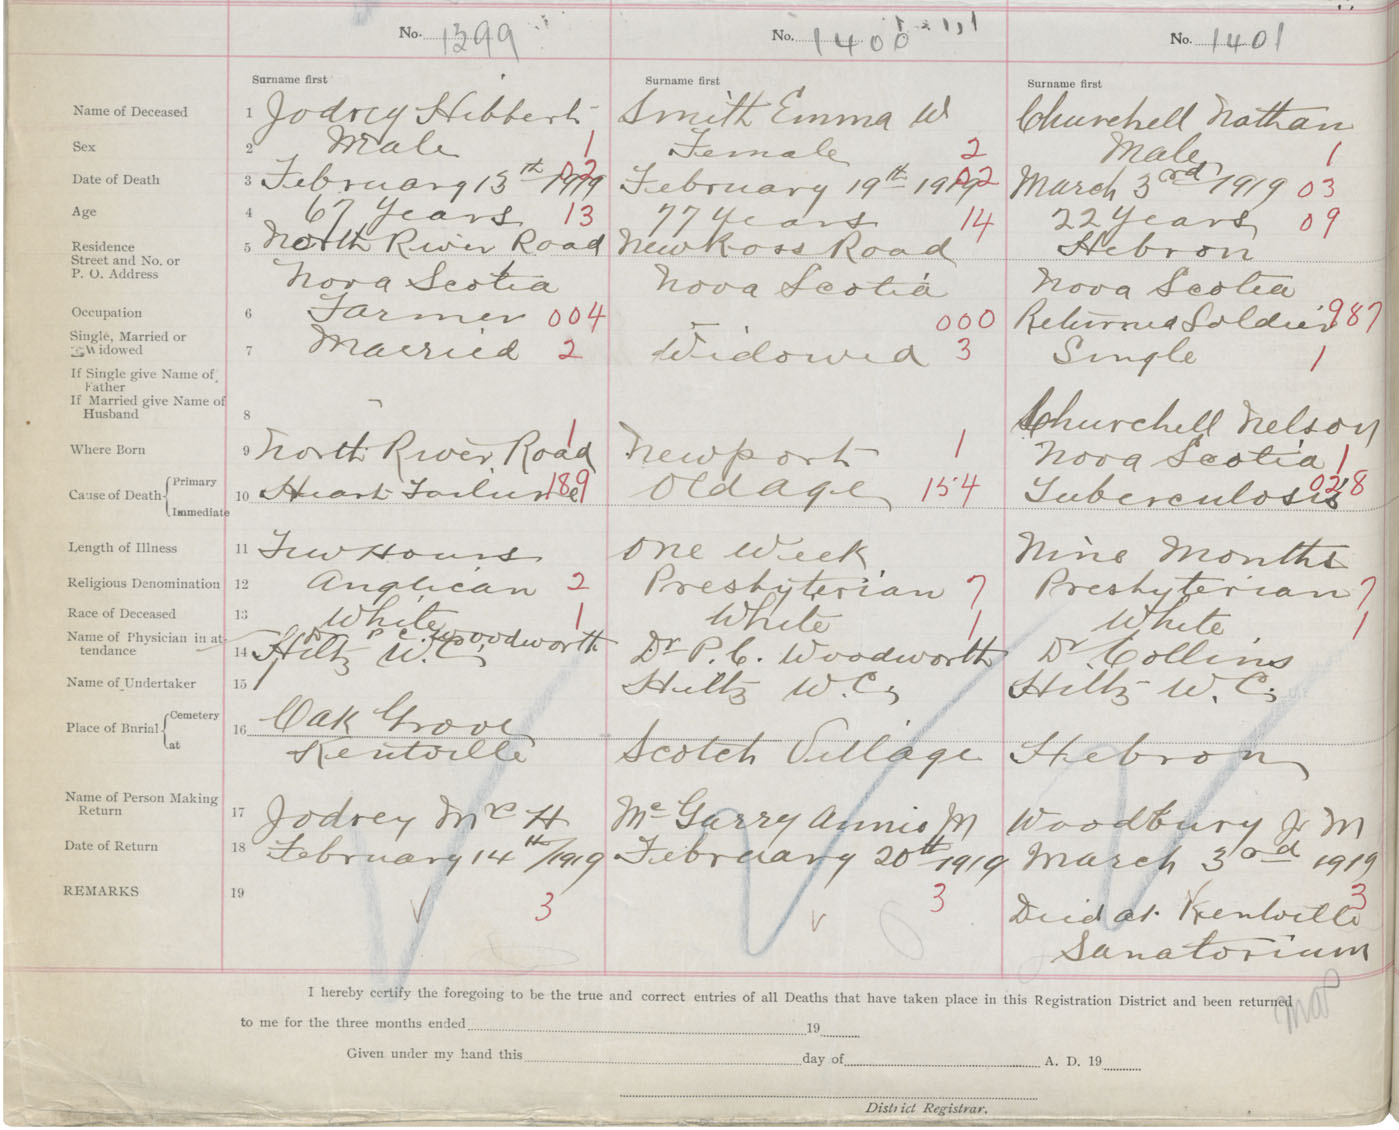 No. 1399 No. 1400 No. 1401
Surname first Surname first Surname first
Name of Deceased 1 Jodrey Hibbert Smith Emma W Churchell Nathan
Sex 2 Male 1 Female 2 Male 1
Date of Death 3 February 13th 1919 02 February 19th 1919 02 March 3rd 1919 03
Age 4 67 Years 13 77 Years 14 22 Years 09
Residence 5 North River Road New Ross Road Hebron
Street and No. or
P. O. Address Nova Scotia Nova Scotia Nova Scotia
Occupation 6 Farmer 004 — 000 Returned Soldier 987
Single, Married or
Widowed 7 Married 2 Widowed 3 Single 1
If Single give Name of
Father
If Married give Name of
Husband 8 Churchell Nelson
Where Born 9 North River Road 1 Newport 1 Nova Scotia 1
Cause of Death Primary 10 Heart Failure 189 Old age 154 Tuberculosis 028
Immediate
Length of Illness 11 Few Hours One Week Nine Months
Religious Denomination 12 Anglican 2 Presbyterian 7 Presbyterian 7
Race of Deceased 13 White 1 White 1 White 1
Name of Physician in at-
tendance 14 Dr P. C. Woodworth Dr P. C. Woodworth Dr Collins
Hiltz W. C.
Name of Undertaker 15 Hiltz W. C. Hiltz W. C.
Place of Burial Cemetery 16 Oak Grove
at Kentville Scotch Village Hebron
Name of Person Making
Return 17 Jodrey Mrs H McGarry Annie M Woodbury J M
Date of Return 18 February 14th/1919 February 20th 1919 March 3rd 1919
REMARKS 19 3 3 3
Died at Kentville
Sanatorium
I hereby certify the foregoing to be the true and correct entries of all Deaths that have taken place in this Registration District and been returned
to me for the three months ended 19
Given under my hand this day of A. D. 19
District Registrar.